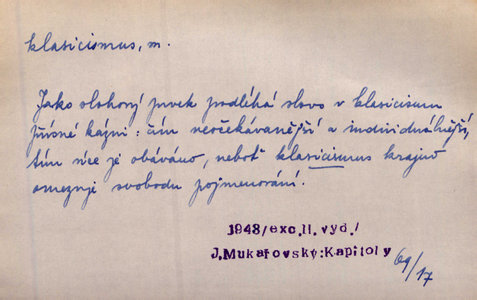 klasicismus, m.
Jako slohový prvek podléhá slovo v klasicismu
přísné kázni: čím neočekávanější a individuálnější,
tím více je obáváno, neboť klasicismus krajně
omezuje svobodu pojmenování.
1948/exc.II.vyd./
J.Mukařovský:Kapitoly
69/17